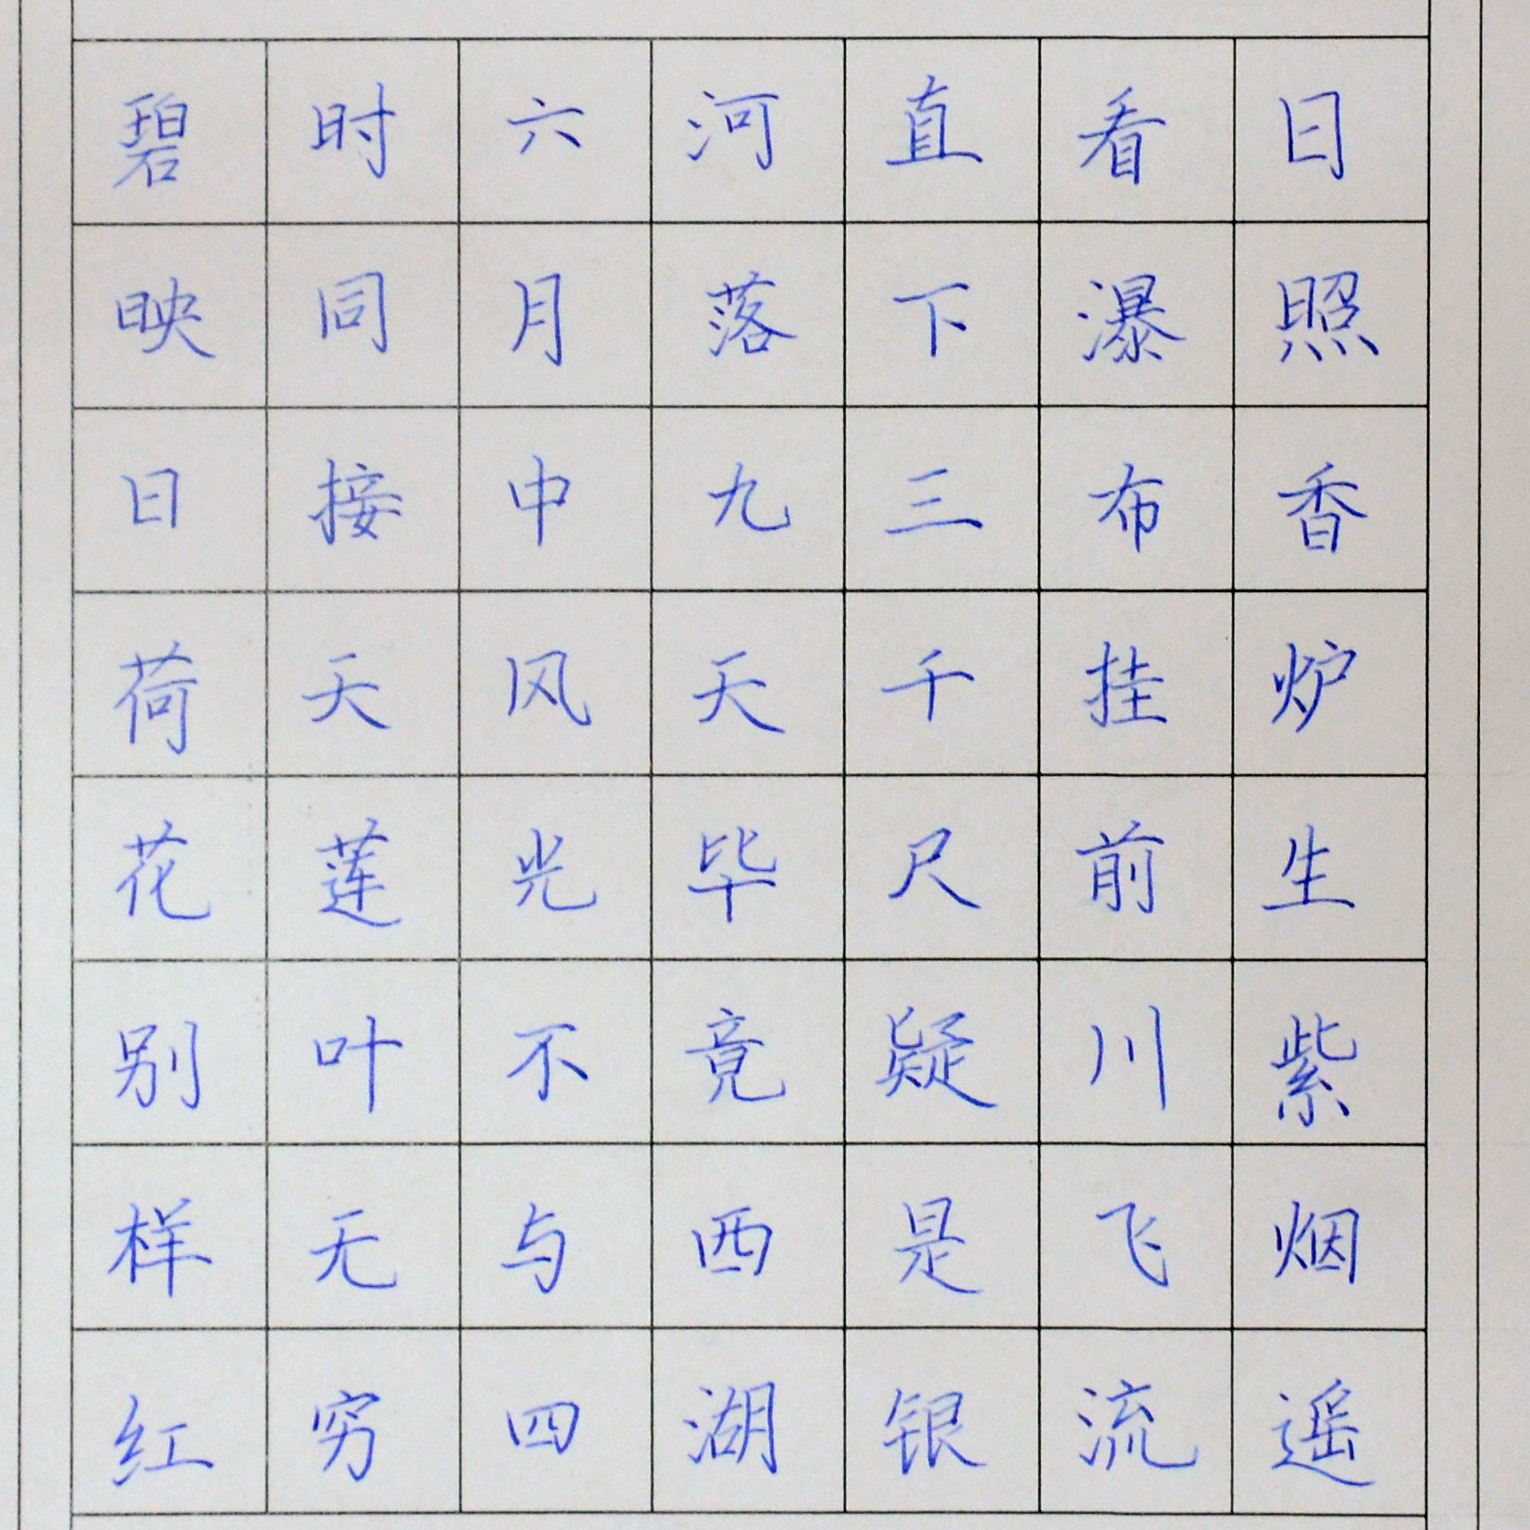 日照香炉生紫烟遥
看瀑布挂前川飞流
直下三千尺疑是银
河落九天毕竟西湖
六月中风光不与四
时同接天莲叶无穷
碧映日荷花别样红